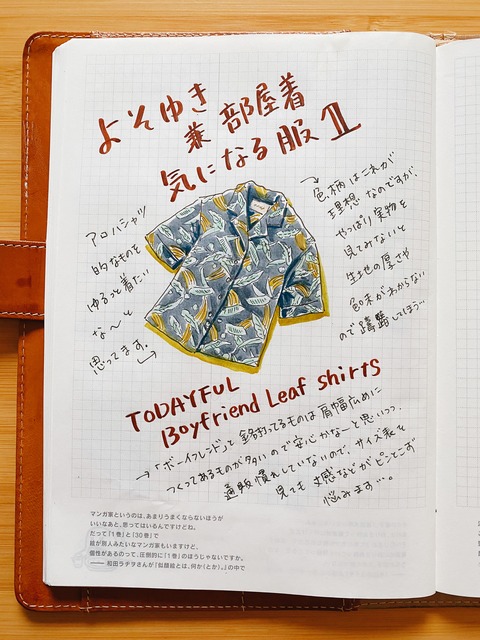 よそゆき
兼 部屋着
気になる服 1
アロハシャツ
的なものを
ゆるっと着たい
な〜と
思ってます。
色、柄はこれが、
理想なのですが、
やっぱり実物を
見てみないと
生地の厚さや
色味がわからない
ので躊躇してしまう…
TODAYFUL
Boyfriend Leaf shirts
→「ボーイフレンド」と銘打ってるものは肩幅広めに
つくってあるものが多いので安心かなーと思いつつ、
通販慣れしていないので、サイズ表を
見ても寸感などがピンとこず
悩みます…。
マンガ家というのは、あまりうまくならないほうが
いいなあと、思ってはいるんですけどね。
だって『1巻』と『30巻』で
絵が別人みたいなマンガ家もいますけど、
個性があるのって、圧倒的に『1巻』のほうじゃないですか。
—— 和田ラヂヲさんが『似顔絵とは、何か(とか)。』の中で